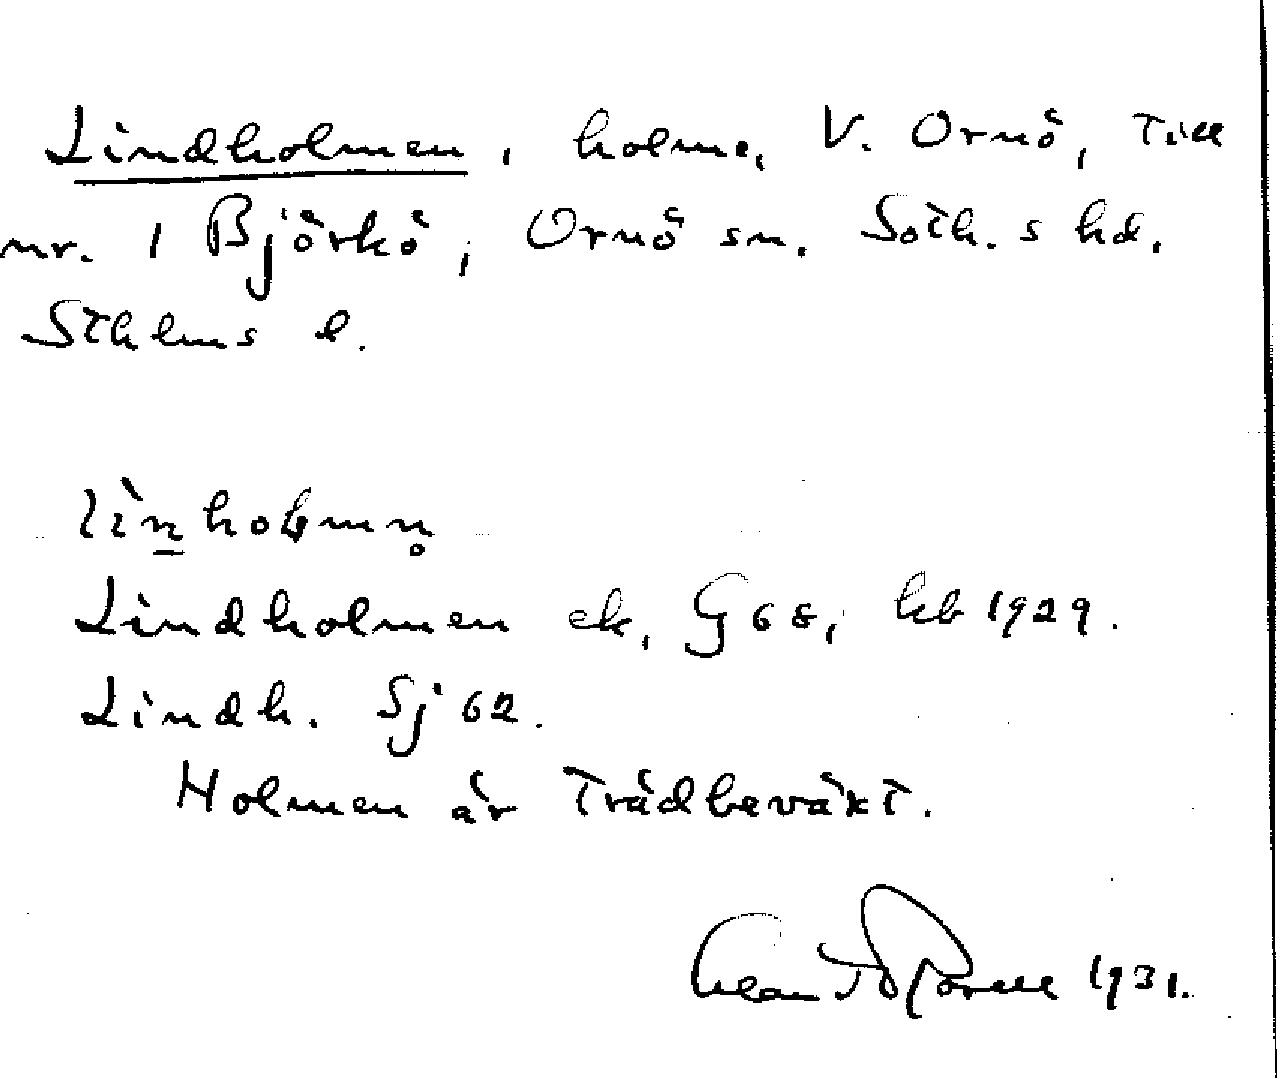 Lindholmen, holme, V. Ornö, till
nr. 1 Björkö, Ornö sn. Soth.s hd.
Sthlms l.
lìn̲hoɫmn̥
Lindholmen ek, G 68, kb 1929.
Lindh. Sj 62.
Holmen är trädbeväxt.
1931.